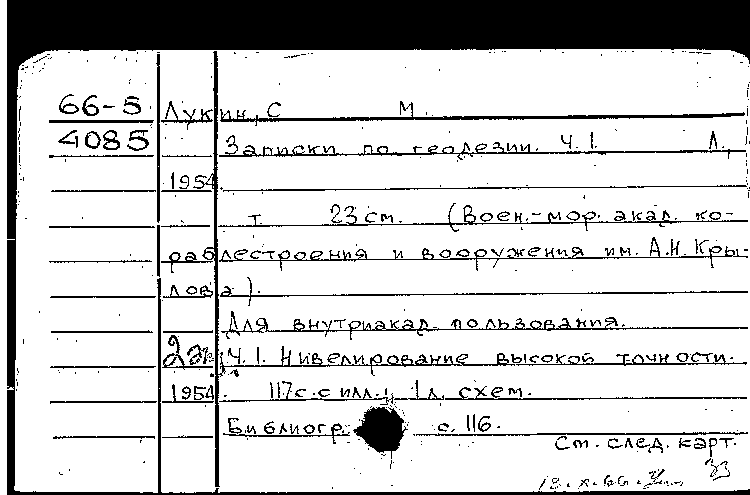 66-5 Лукин, С М.
4085 Записки по геодезии. Ч. 1. Л.,
1954
т. 23 см. (Воен.-мор. акад. ко-
раблестроения и вооружения им. А.Н. Кры-
лова).
Для внутриакад. пользования.
2 эк. Ч. 1. Нивелирование высокой точности.
1954. 117 с. с илл.; 1 л. схем.
Библиогр. с. 116.
См. след. карт.
18.X.66. 33